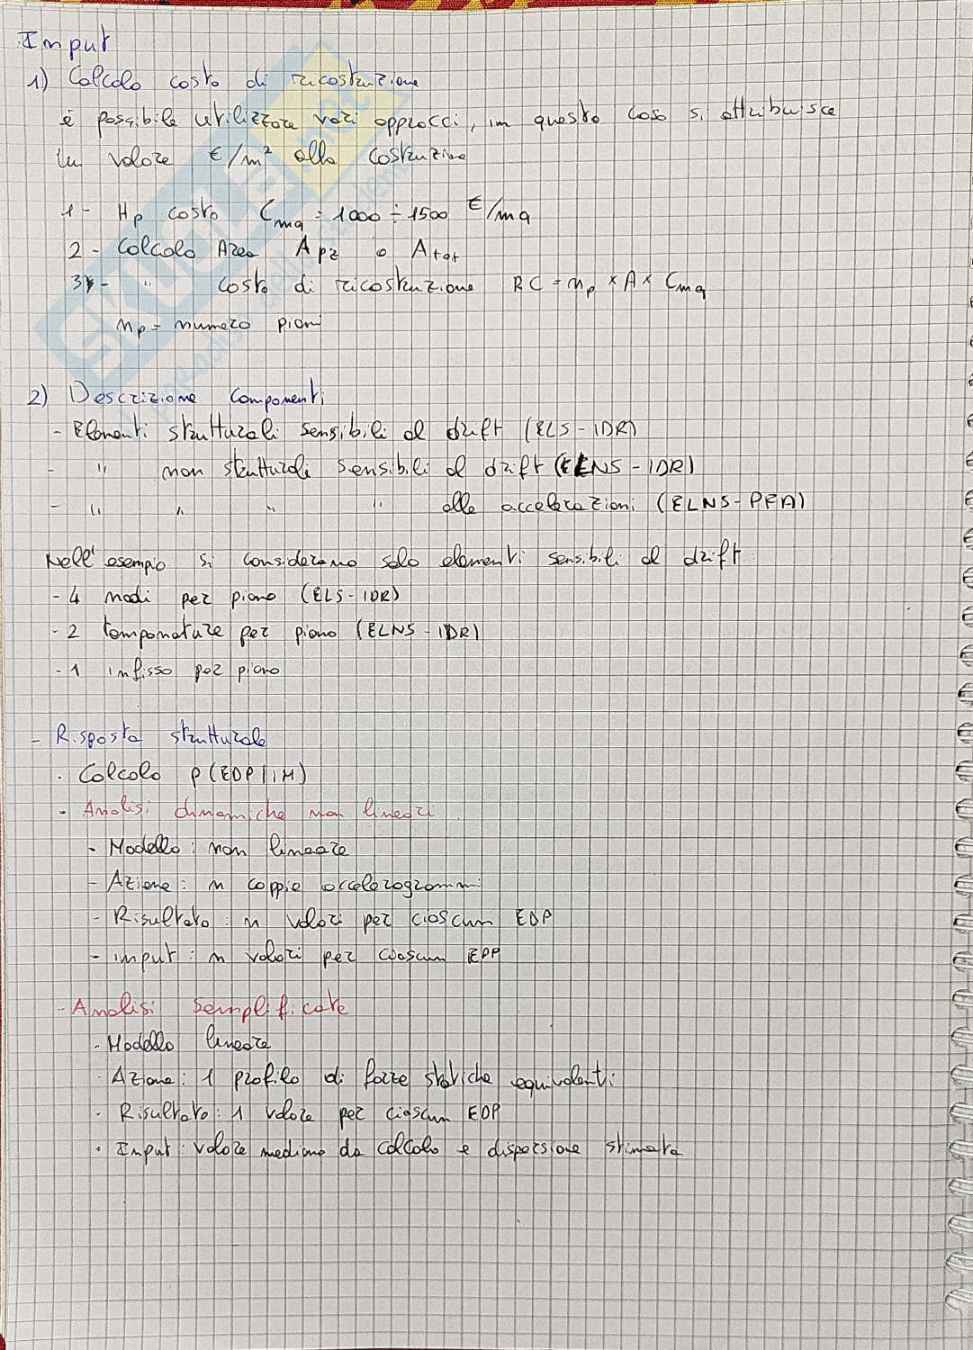 Input
1) Calcolo costo di ricostruzione
è possibile utilizzare vari approcci, in questo caso si attribuisce
un valore €/m² alla costruzione
1- Hp costo Cmq = 1000 ÷ 1500 €/mq
2- Calcolo Area Apz o Atot
3- " costo di ricostruzione RC = np × A × Cmq
np = numero piani
2) Descrizione Componenti
- Elementi strutturali sensibili al drift (ELS-IDR)
- " non strutturali sensibili al drift (ELNS-IDR)
- " " " " alle accelerazioni (ELNS-PFA)
Nell'esempio si considerano solo elementi sensibili al drift
- 4 nodi per piano (ELS-IDR)
- 2 tamponature per piano (ELNS-IDR)
- 1 infisso per piano
- Risposta strutturale
. Calcolo p(EDP|IM)
- Analisi dinamiche non lineari
- Modello: non lineare
- Azione: n coppie accelerogrammi
- Risultato: n valori per ciascun EDP
- input: n valori per ciascun EDP
- Analisi semplificate
- Modello lineare
- Azione: 1 profilo di forze statiche equivalenti
. Risultato: 1 valore per ciascun EDP
. Input: valore mediano da calcolo e dispersione stimata
SKUOLA.net